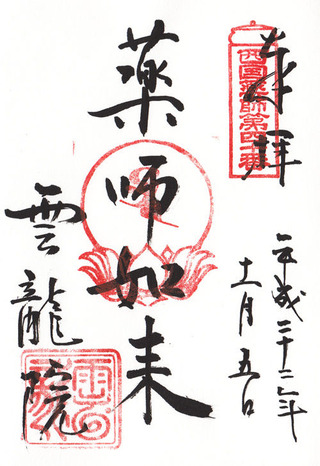 奉拝
西国薬師第四十番
平成二十二年
十一月五日
薬師如来
雲龍院